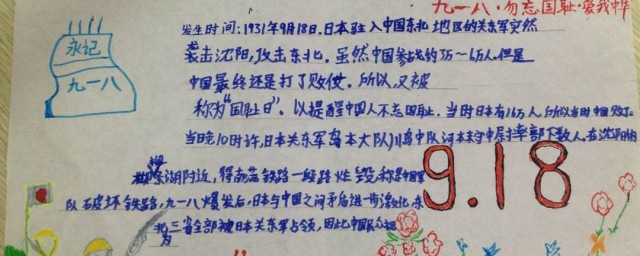 九一八·勿忘国耻·爱我中华
永记
九一八
发生时间:1931年9月18日,日本驻入中国东北地区的关东军突然
袭击沈阳,攻击东北。虽然中国参战的75~6万人,但是
中国最终还是打了败仗。所以,又被
称为"国耻日"。以提醒中国人不忘国耻。当时日本有16万人,所以当时中国败了。
当日晚10时许,日本关东军岛本大队川岛中队河本末守中尉率部下数人,在沈阳
湖附近,将南满铁路一段路炸毁,称是中国军
队破坏铁路,九一八爆发后,日本与中国之间矛盾进一步激化,东
北三省全部被日本关东军占领,因此中国民众
为
9.18